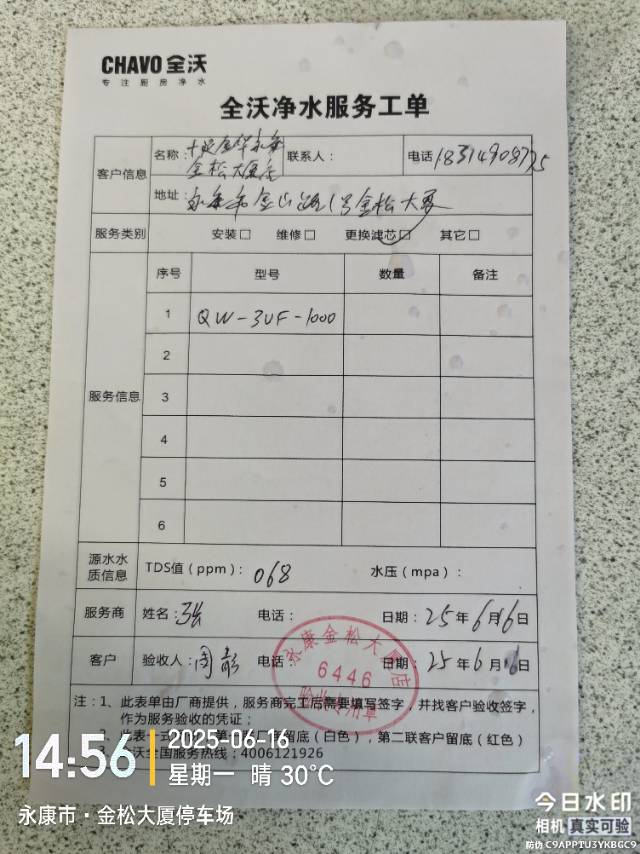 CHAVO 全沃
专注厨房净水
全沃净水服务工单
客户信息
名称：十足金华永康
金松大厦店
联系人：
电话 18314908775
地址：永康市金山路1号金松大厦
服务类别 安装□ 维修□ 更换滤芯□ 其它□
服务信息
序号 型号 数量 备注
1 QW-3UF-1000
2
3
4
5
6
源水水质信息 TDS值（ppm）：068 水压（mpa）：
服务商 姓名：张 电话： 日期：25年6月16日
客户 验收人：周 电话： 日期：25年6月16日
永康金松大厦店
6446
验收专用章
注：1、此表单由厂商提供，服务商完工后需要填写签字，并找客户验收签字，
作为服务验收的凭证；
2、此表一式 留底（白色），第二联客户留底（红色）
全沃全国服务热线：4006121926
14:56
2025-06-16
星期一 晴 30℃
永康市·金松大厦停车场
今日水印
相机 真实可验
防伪 C9APPTU3YKBGC9